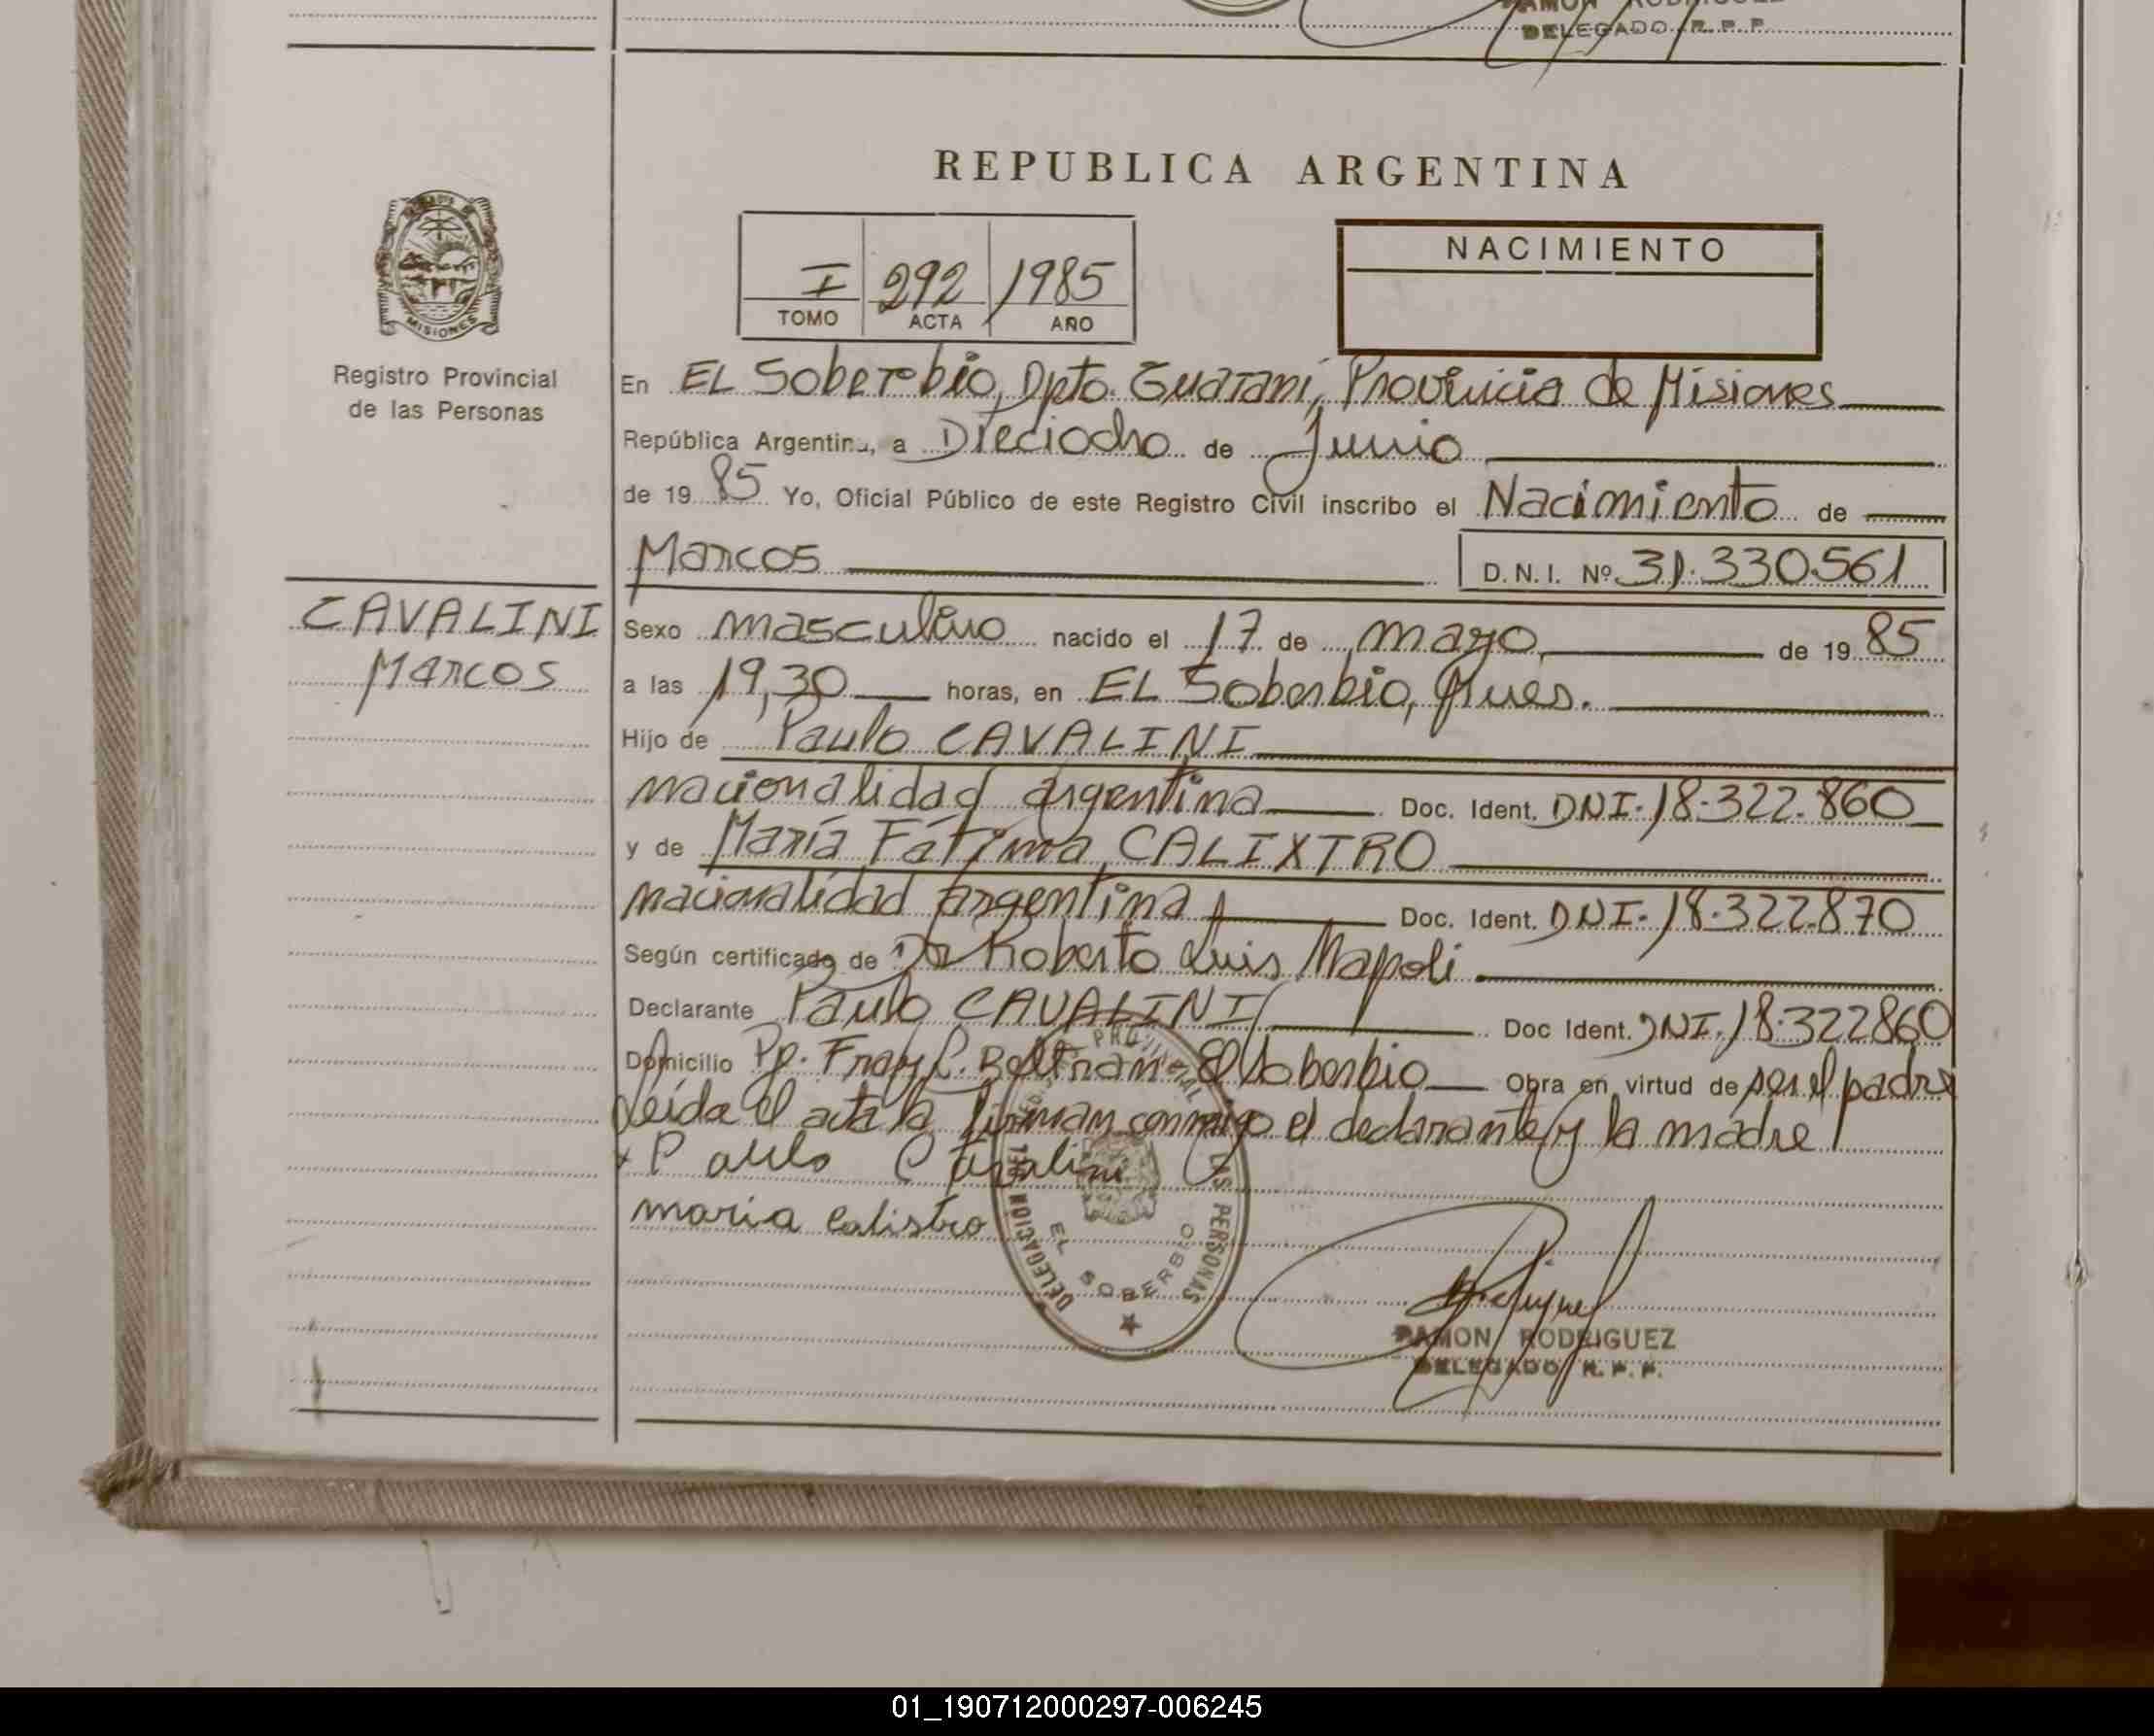 RAMON RODRIGUEZ
DELEGADO R.P.P.
REPUBLICA ARGENTINA
NACIMIENTO
I 292 1985
TOMO ACTA AÑO
MISIONES
Registro Provincial
de las Personas
En EL Soberbio, Dpto. Guaraní, Provincia de Misiones
República Argentina, a Dieciocho de Junio
de 1985 Yo, Oficial Público de este Registro Civil inscribo el Nacimiento de
Marcos D.N.I. Nº 31.330.561
CAVALINI
Marcos
Sexo masculino nacido el 17 de mayo de 1985
a las 19,30 horas, en EL Soberbio, Mnes.
Hijo de Paulo CAVALINI
nacionalidad argentina Doc. Ident. DNI. 18.322.860
y de María Fátima CALIXTRO
nacionalidad argentina Doc. Ident. DNI. 18.322.870
Según certificado de Dr Roberto Luis Napoli
Declarante Paulo CAVALINI Doc Ident. DNI. 18.322860
Domicilio Pje. Fray L. Beltran El Soberbio Obra en virtud de ser el padre
Leída el acta la firman conmigo el declarante y la madre
x Paulo Cavalini
maria Calistro
DELEGACION DEL PROVINCIAL LAS PERSONAS
EL SOBERBIO
RAMON RODRIGUEZ
DELEGADO R.P.P.
01_190712000297-006245